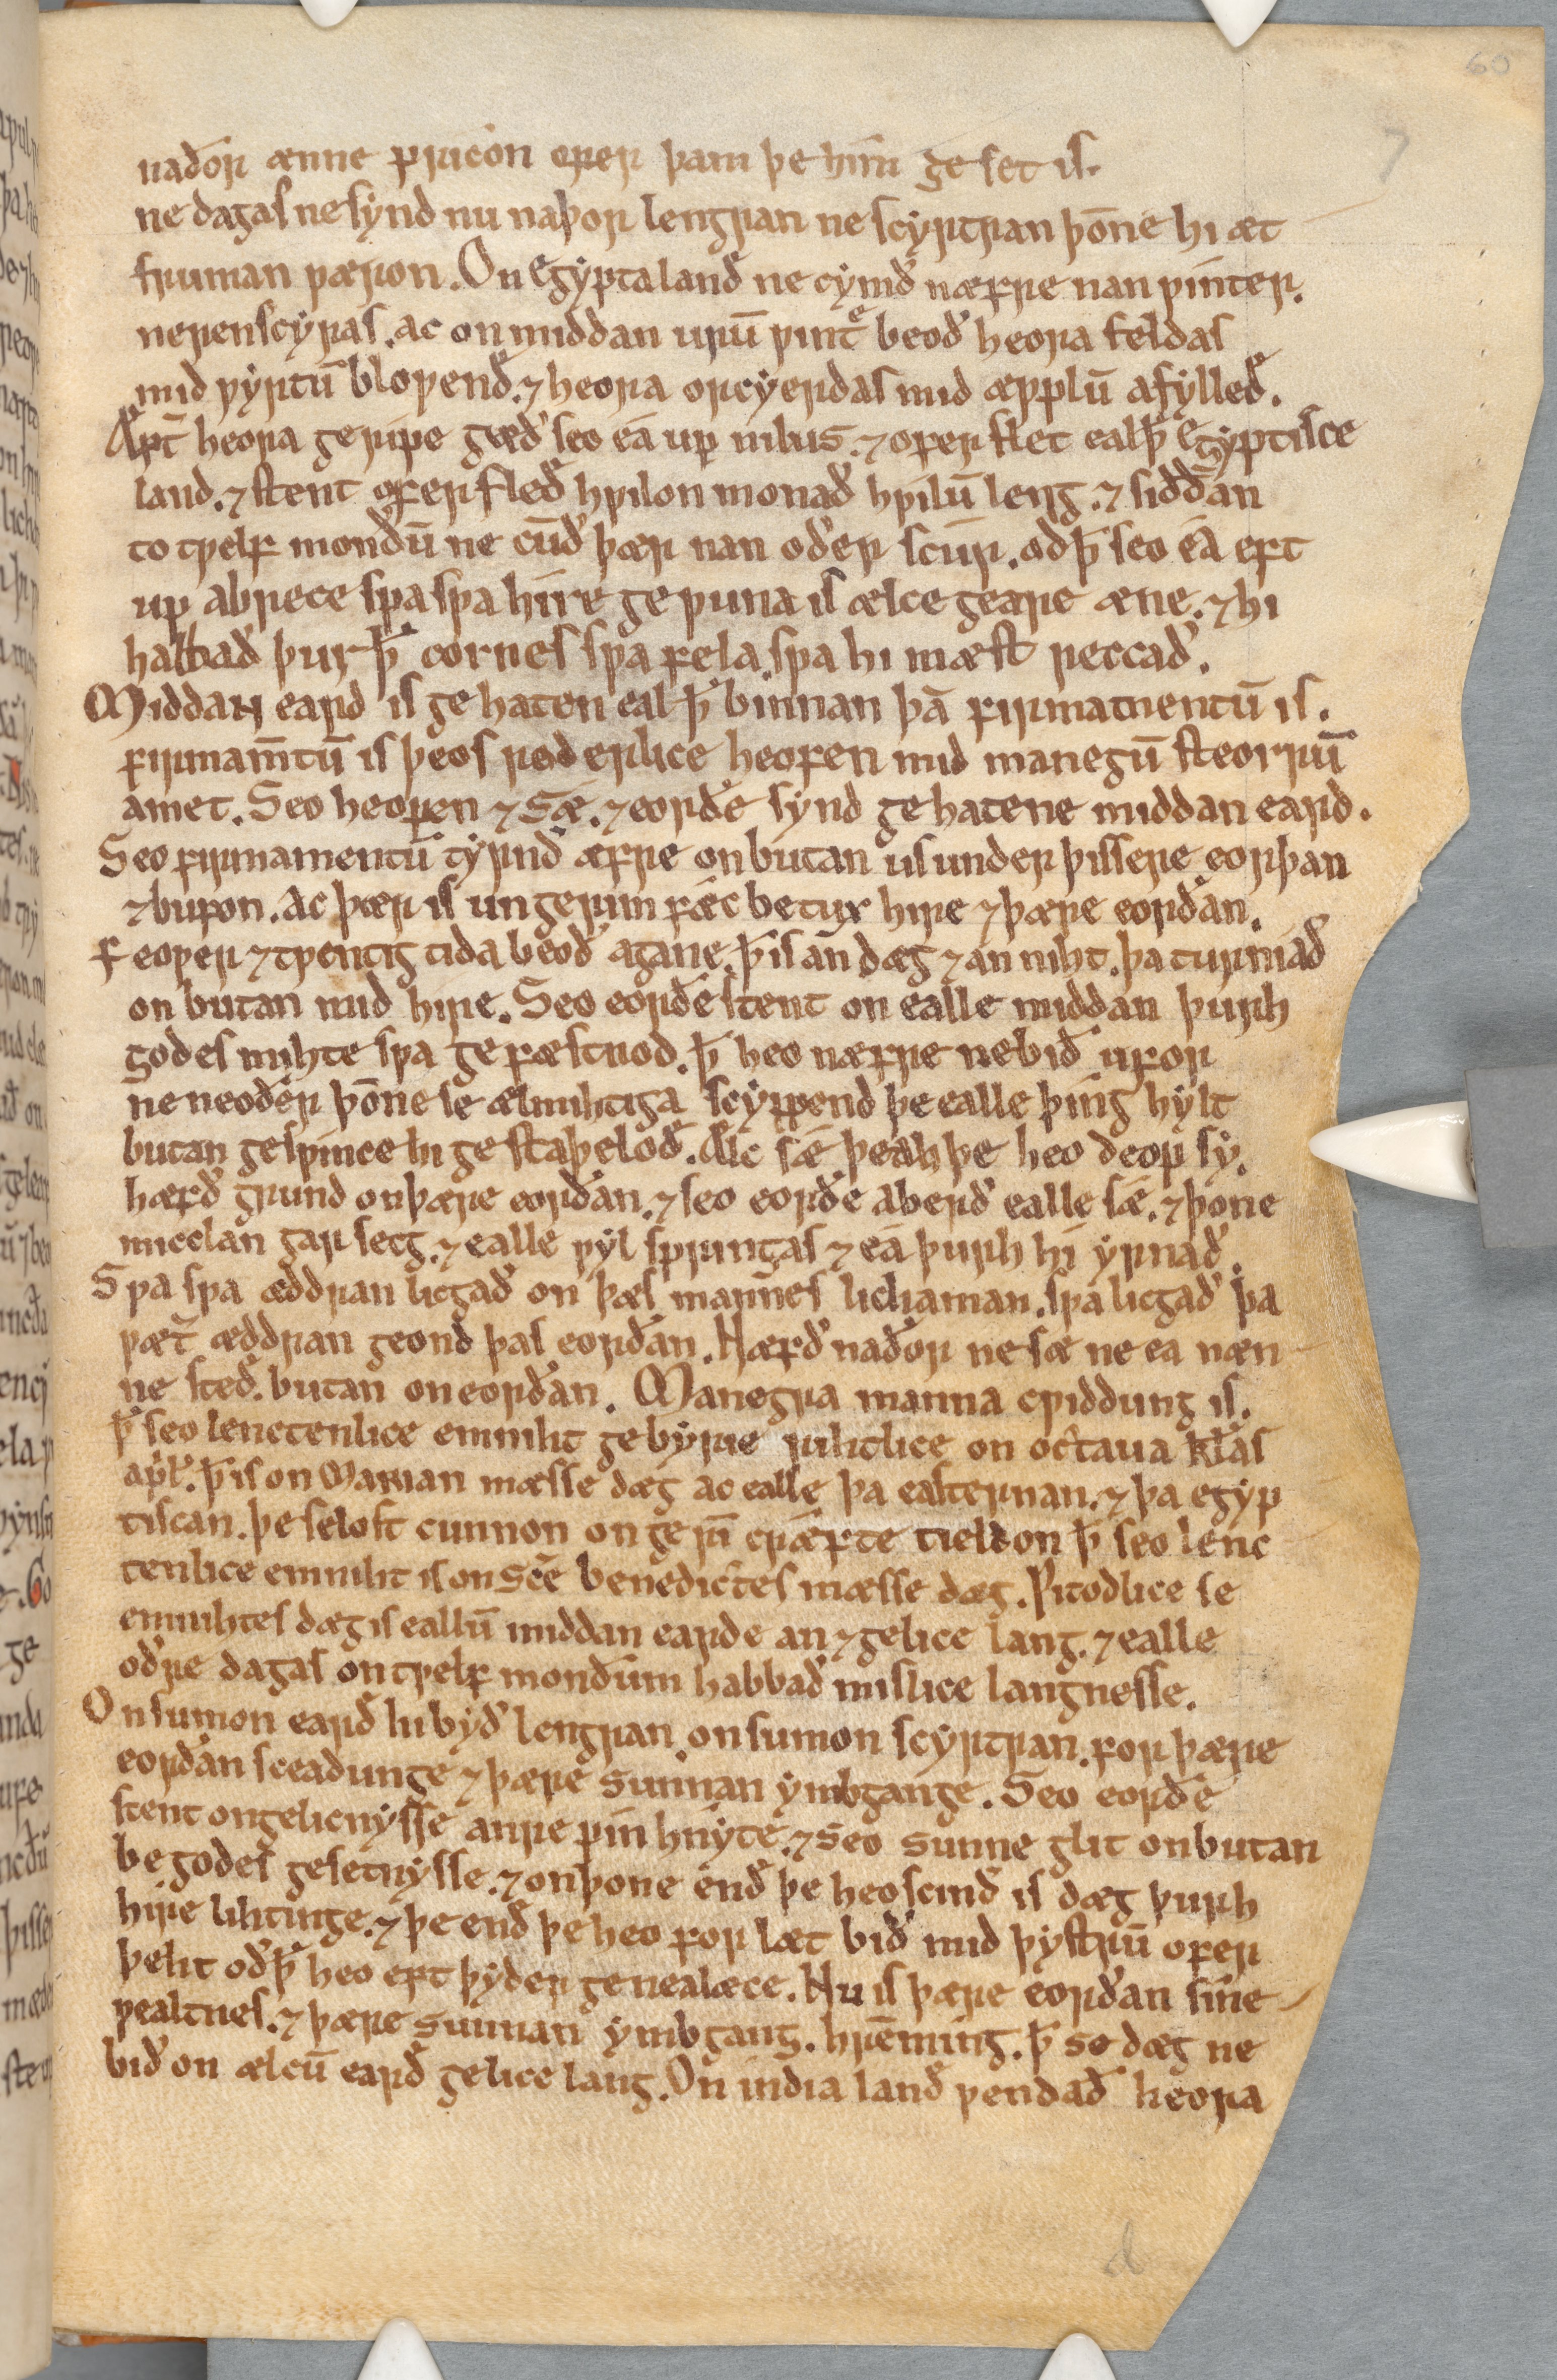 naðor ænne pricon ofer þam þe him ge set is.
ne dagas ne synd nu naþor lengran ne scyrtran þōne hi æt
fruman ƿæron. On egypta land ne cymð næfre nan ƿinter.
ne renscyras. ac on middan urū ƿint̄ beoð heora feldas
mid ƿyrtū bloƿend. ⁊ heora orcyerdas mid æpplū afylled.
Æft̄ heora geripe gæð seo ea up nilus. ⁊ ofer flet eal ꝥ egyptisce
land. ⁊ stent ofer fleð hƿilon monað hƿilū leng. ⁊ siððan
to tƿelf monðū ne cūð þær nan oðer scur. oð ꝥ seo ea eft
up abrece sƿa sƿa hire ge ƿuna is ælce geare æne. ⁊ hi
habbað þur ꝥ cornes sƿa fela sƿa hi mæst reccað.
Middan eard is ge haten eal ꝥ binnan þā firmamentū is.
firmam̄tū is þeos roderlice heofen mid manegū steorrū
amet. Seo heofen ⁊ sæ. ⁊ eorðe synd ge hatene middan eard.
Seo firmamentū tyrnð æfre onbutan us under þissere eorþan
⁊ bufon. Ac þær is ungerim fæc betux hire ⁊ þære eorðan.
Feoƿer ⁊ tƿentig tida beoð agane. ꝥ is an dæg ⁊ an niht. þa turniað
on butan mid hire. Seo eorðe stent on ealle middan þurh
godes mihte sƿa ge fæstnod. ꝥ heo næfre ne bið ufor
ne neoðer þōne se ælmihtiga scyppend þe ealle þing hylt
butan gesƿince hi ge staþelod. Ælc sæ þeah þe heo deop sy.
hæfð grund on þære eorðan. ⁊ seo eorðe aberð ealle sæ. ⁊ þone
micelan gar secg. ⁊ ealle ƿyl springas ⁊ ea þurh hi yrnað.
Sƿa sƿa æddran licgað on þæs mannes lichaman. sƿa licgað þa
ƿæt̄ æddran geond þas eorðan. Næfð naðor ne sæ ne ea næn
ne sted. butan on eorðan. Manegra manna cƿiddung is.
ꝥ seo lenctenlice emniht ge byrie rihtlice on octaua kl̄as
apl̄. ꝥ is on Marian mæsse dæg ac ealle þa easternan. ⁊ þa egyp
tiscan. þe selost cunnon on ge rī cræfte tieldon ꝥ seo lenc
tenlice emniht is on sc̄e benedictes mæsse dæg. Ƿitodlice se
emnihtes dæg is eallū middan earde an ⁊ gelice lang. ⁊ ealle
oðre dagas on tƿelf monðum habbað mislice langnesse.
On sumon eard hi byð lengran. on sumon scyrtran. for þære
eorðan sceadunge ⁊ þære sunnan ymbgange. Seo eorðe
stent on gelicnysse anre pinhnyte. ⁊ seo sunne glit onbutan
be godes gesetnysse. ⁊ on þone end þe heo scinð is dæg þurh
hire lihtinge. ⁊ þe end þe heo for læt bið mid þystrū ofer
þeht oð ꝥ heo eft þyder genealæce. Nu is þære eorðan sine
ƿealtnes. ⁊ þære sunnan ymbgang. hremming. ꝥ se dæg ne
bið on ælcū eard gelice lang. On india land ƿendað heora